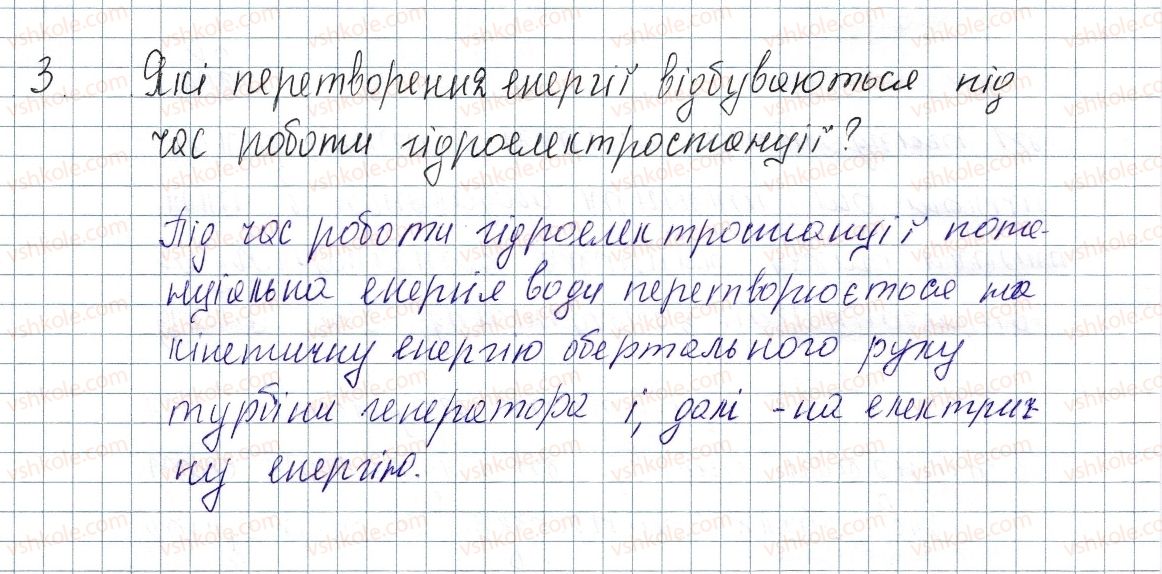 3. Які перетворення енергії відбуваються під
час роботи гідроелектростанції?
Під час роботи гідроелектростанції поте-
нціальна енергія води перетворюється на
кінетичну енергію обертального руху
турбіни генератора і, далі - на електрич-
ну енергію.
vshkole.com